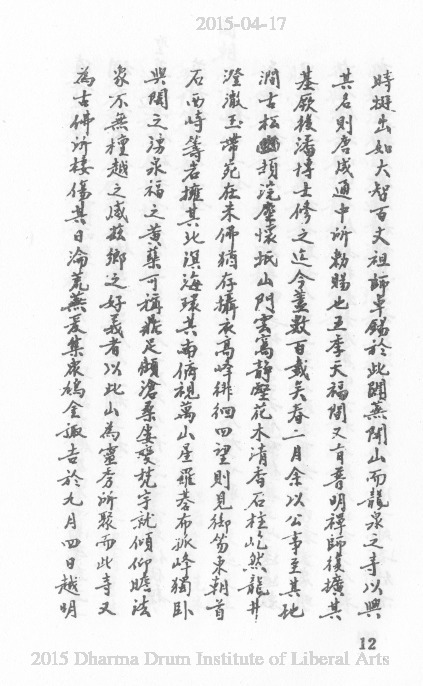 2015-04-17
時挺出如大智百丈祖師卓錫於此闢無閒山而龍泉之寺以興
其名則唐咸通中所勅賜也五季天福間又有普明禪師復擴其
基厥後潘博士修之迄今蓋數百載矣春二月余以公事至其地
澗古松頹滌塵懷抵山門雲窩靜壑花木清香石柱屹然龍井
澄澈玉帶宛在木佛猶存攝衣高峰徘徊四望則見御笏東朝首
石西峙筆岩擁其北溟海環其南俯視萬山星羅碁布孤峰獨臥
與閩之湧泉福之黃蘗可稱鼎足顧滄桑屢變梵宇就傾仰瞻法
象不無檀越之感茲鄉之好義者以此山為靈秀所聚而此寺又
為古佛所棲傷其日淪荒蕪爰集眾鳩金諏吉於九月四日越明
12
2015 Dharma Drum Institute of Liberal Arts